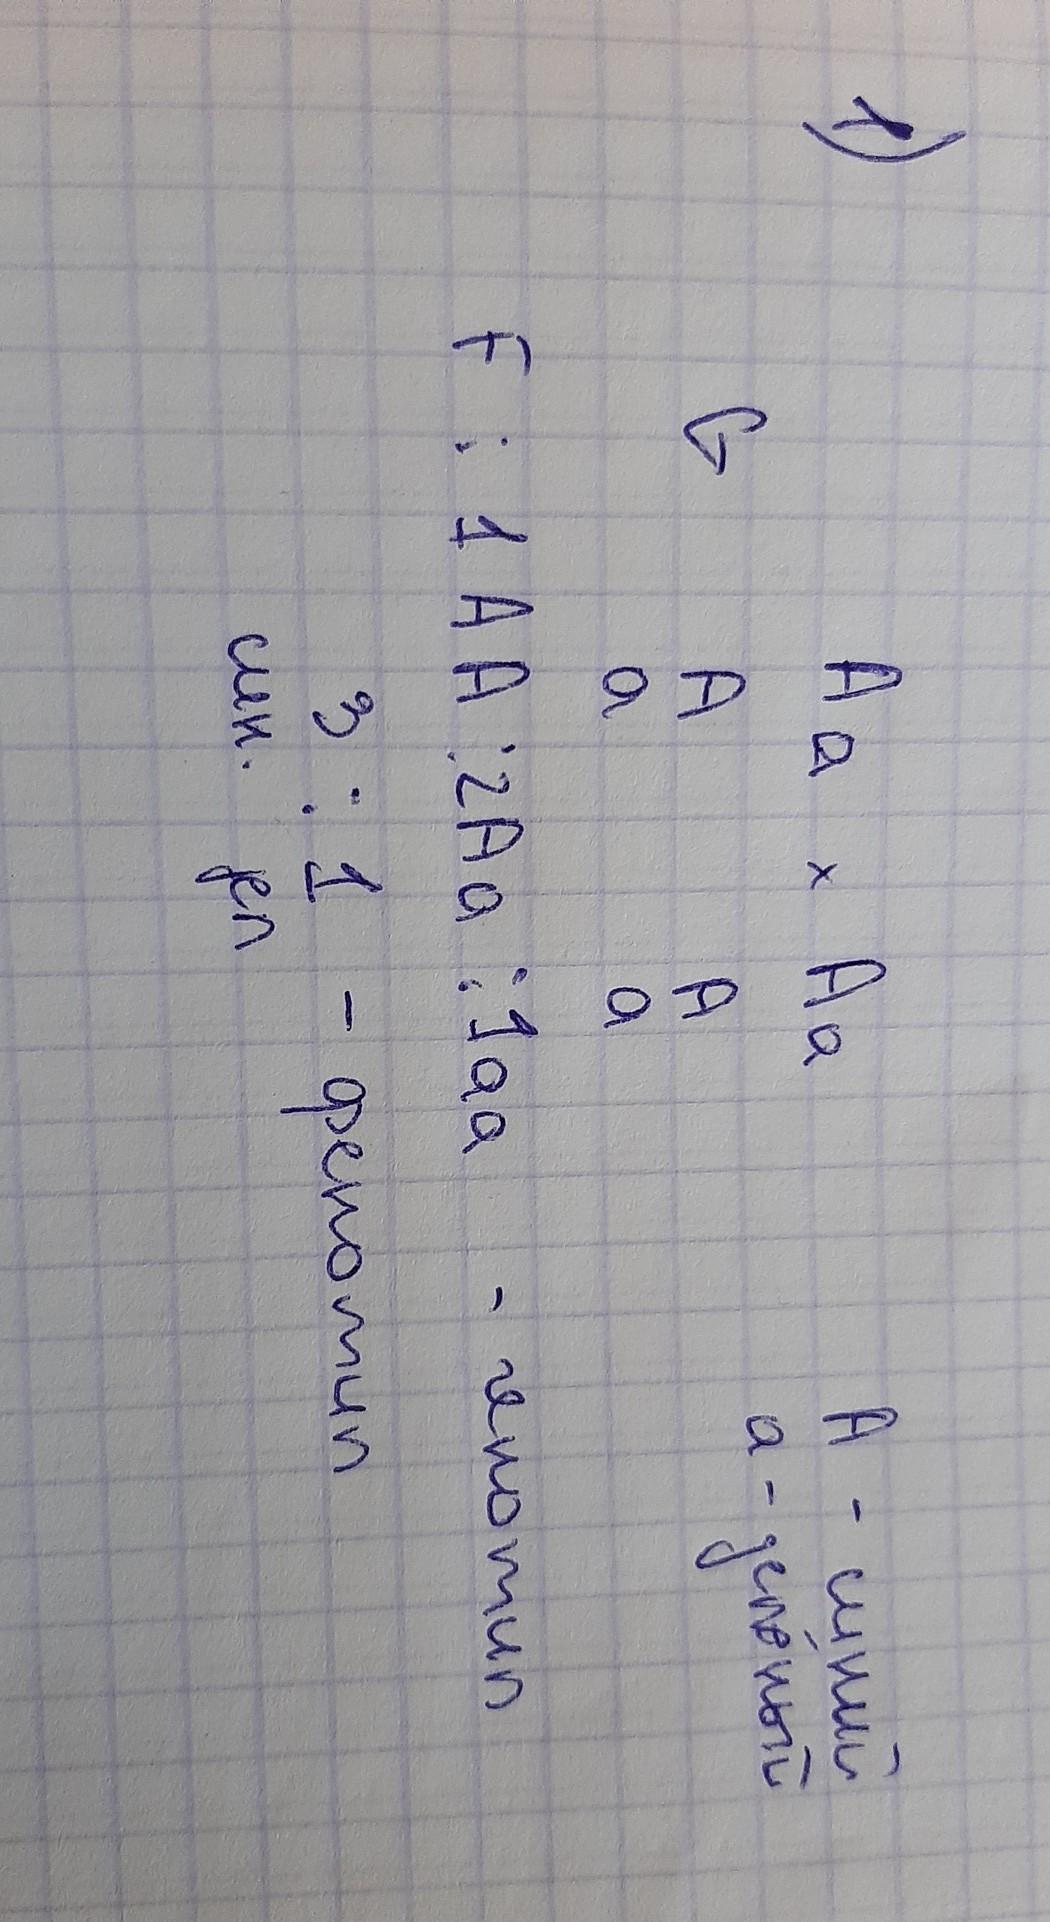 1)
Aa x Aa A - синий
G A A а - зелёный
а а
F : 1AA : 2Aa : 1aa - генотип
3 : 1 - фенотип
син. зел